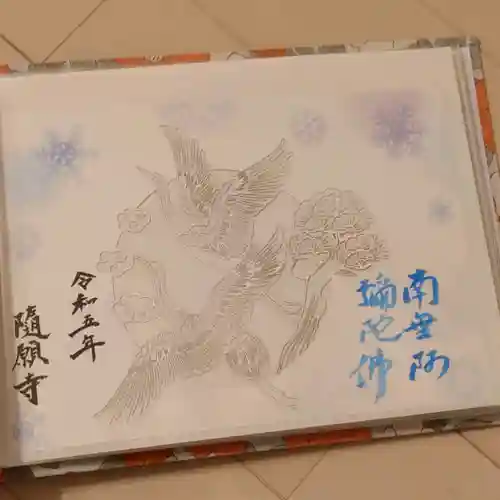 南無阿
彌陀佛
令和五年
隨願寺